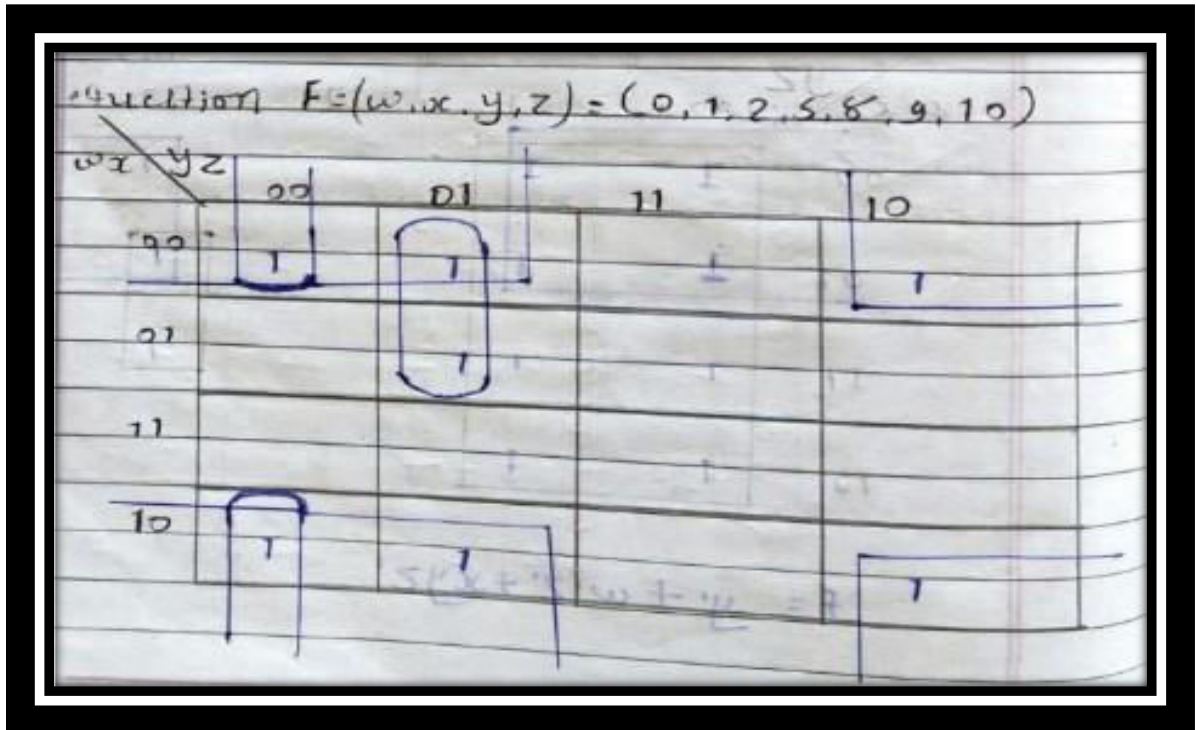 F=(w,x,y,z)=(0,1,2,5,8,9,10)
wx yz
00 01 11 10
00 1 1 1
01 1
11
10 1 1 1